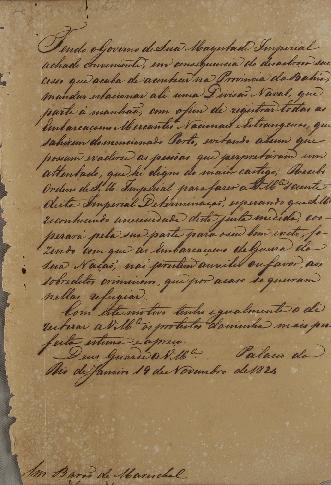 Tendo o Governo de Sua Magestade Imperial
achado conveniente, em consequencia do desastroso suc
cesso que acaba de acontecer na Provincia da Bahia,
mandar estacionar ali uma Divisão Naval, que
parte á manhãa, com o fim de registrar todas as
Embarcaçoens Mercantes Nacionaes e Estrangeiras, que
sahirem do mencionado Porto, evitando assim que
possam evadir-se as pessoas que perpetraram um
attentado, que he digno do maior castigo; Recebi
ordem de S. M. Imperial para fazer a V. M.ce sciente
desta Imperial Determinação, esperando que V. M.ce
reconhecendo a necessidade desta justa medida, coo
perará pela sua parte para o seu bom exito, fa
zendo com que as Embarcaçoens de Guerra da
sua Nação, não prestem auxilio ou favor aos
sobreditos criminosos, que por acaso se queiram
nellas refugiar.
Com este motivo tenho igualmente o de
reiterar a V. M.ce os protestos da minha mais per
feita estima e apreço.
Deos Guarde a V. M.ce Palacio do
Rio de Janeiro 19 de Novembro de 1824
Snr. Barão de Mareschal